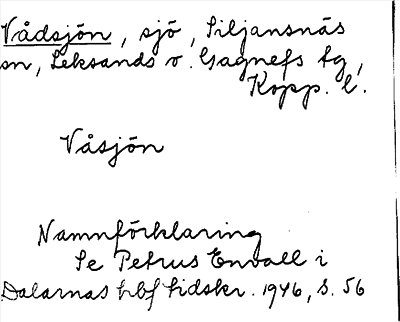 Vådsjön, sjö, Siljansnäs
sn, Leksands o. Gagnefs tg,
Kopp. l.
Våsjön
Namnförklaring
Se Petrus Envall i
Dalarnas hbf tidskr. 1946, s. 56